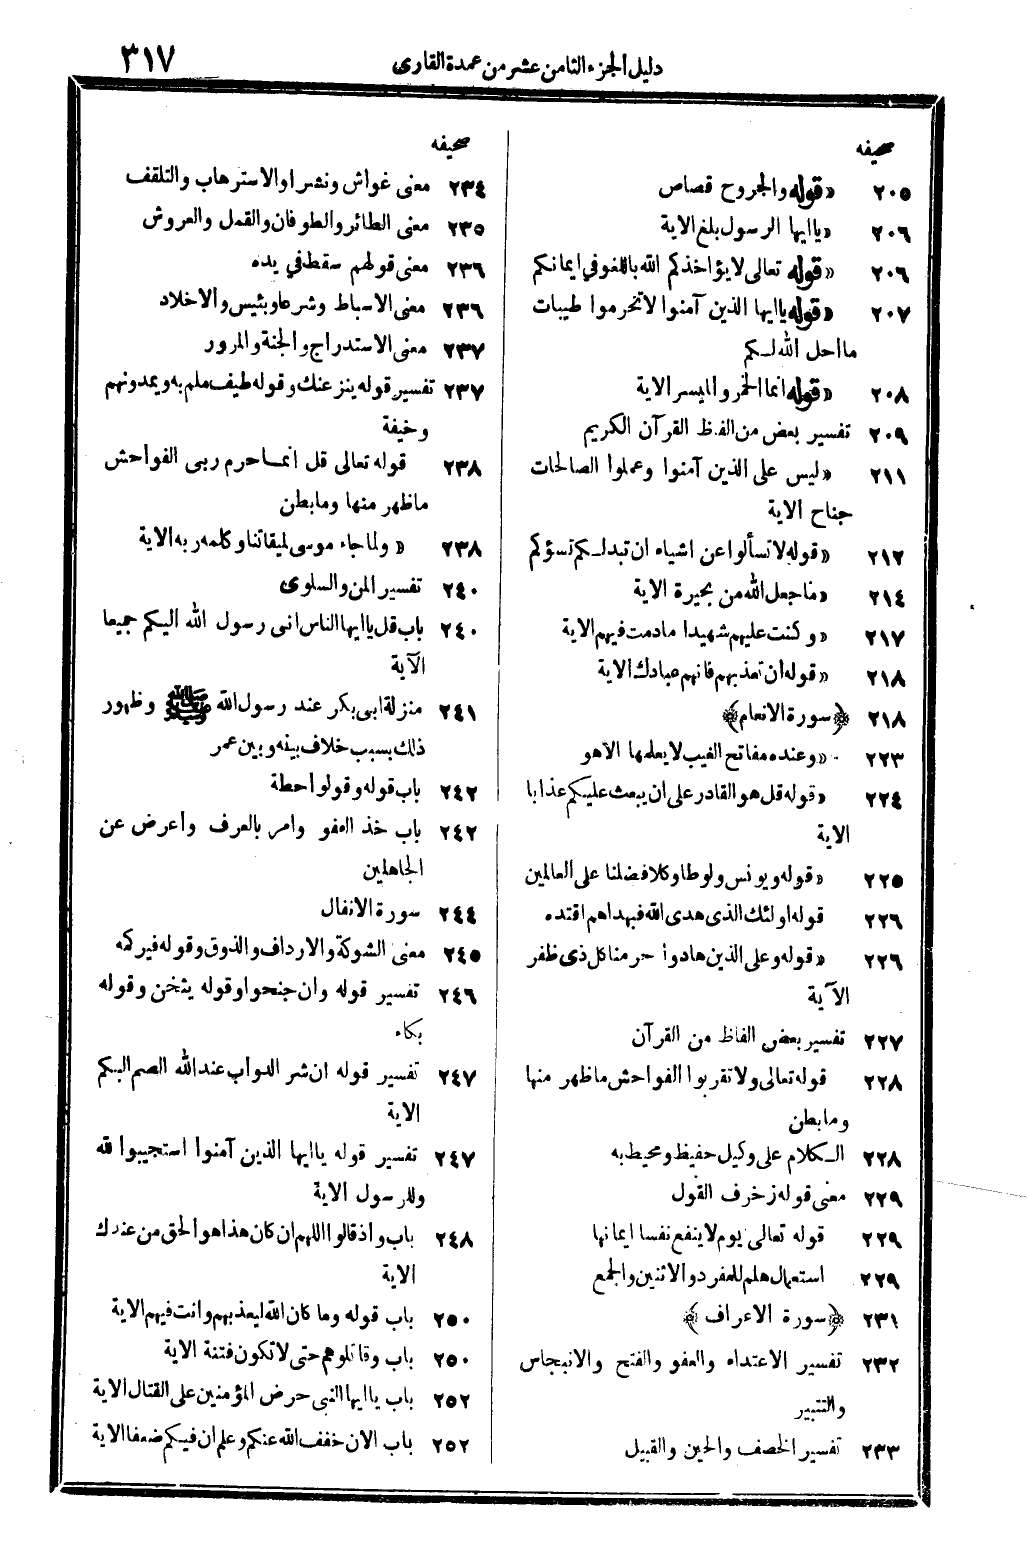 دليل الجزء الثامن عشر من عمدة القارى
٣١٧
صحيفه
٢٠٥ « قوله والجروح قصاص
٢٠٦ « ياايها الرسول بلغ الاية
٢٠٦ « قوله تعالى لا يؤاخذكم الله باللغو في ايمانكم
٢٠٧ « قوله ياايها الذين آمنوا لا تحرموا طيبات
مااحل الله لكم
٢٠٨ « قوله انما الخمر والميسر الاية
٢٠٩ تفسير بعض من الفظ القرآن الكريم
٢١١ « ليس على الذين آمنوا وعملوا الصالحات
جناح الاية
٢١٢ « قوله لا تسألوا عن اشياء ان تبد لكم تسؤكم
٢١٤ « ما جعل الله من بحيرة الاية
٢١٧ « وكنت عليهم شهيدا مادمت فيهم الاية
٢١٨ « قوله ان تعذبهم فانهم عبادك الاية
٢١٨ ﴿ سورة الانعام ﴾
٢٢٣ « وعنده مفاتح الغيب لا يعلمها الاهو
٢٢٤ « قوله قل هو القادر على ان يبعث عليكم عذابا
الاية
٢٢٥ « قوله ويونس ولوطا وكلا فضلنا على العالمين
٢٢٦ قوله اولئك الذى هدى الله فبهداهم اقتده
٢٢٦ « قوله وعلى الذين هادوا حرمنا كل ذى ظفر
الآية
٢٢٧ تفسير بعض الفاظ من القرآن
٢٢٨ قوله تعالى ولا تقربوا الفواحش ماظهر منها
ومابطن
٢٢٨ الكلام على وكيل حفيظ ومحيط به
٢٢٩ معنى قوله زخرف القول
٢٢٩ قوله تعالى يوم لا ينفع نفسا ايمانها
٢٢٩ استعمال هلم للمفرد والاثنين والجمع
٢٣١ ﴿ سورة الاعراف ﴾
٢٣٢ تفسير الاعتداء والعفو والفتح والانبجاس
والتتبير
٢٣٣ تفسير الخصف والحين والقبيل
صحيفه
٢٣٤ معنى غواش ونشرا والاسترهاب والتلقف
٢٣٥ معنى الطائر والطوفان والقمل والعروش
٢٣٦ معنى قولهم سقط في يده
٢٣٦ معنى الاسباط وشرعا وبئيس والاخلاد
٢٣٧ معنى الاستدراج والجنة والمرور
٢٣٧ تفسير قوله ينزعنك وقوله طيف ملم به ويمدونهم
وخيفة
٢٣٨ قوله تعالى قل انما حرم ربى الفواحش
ماظهر منها ومابطن
٢٣٨ « ولما جاء موسى لميقاتنا وكلمه ربه الاية
٢٤٠ تفسير المن والسلوى
٢٤٠ باب قل ياايها الناس انى رسول الله اليكم جميعا
الآية
٢٤١ منزلة ابى بكر عند رسول الله ﷺ وظهور
ذلك بسبب خلاف بينه وبين عمر
٢٤٢ باب قوله وقولوا حطة
٢٤٢ باب خذ العفو وامر بالعرف واعرض عن
الجاهلين
٢٤٤ سورة الانفال
٢٤٥ معنى الشوكة والارداف والذوق وقوله فيركمه
٢٤٦ تفسير قوله وان جنحوا وقوله يثخن وقوله
بكاء
٢٤٧ تفسير قوله ان شر الدواب عند الله الصم البكم
الاية
٢٤٧ تفسير قوله ياايها الذين آمنوا استجيبوا لله
وللرسول الاية
٢٤٨ باب واذ قالوا اللهم ان كان هذا هو الحق من عندك
الاية
٢٥٠ باب قوله وما كان الله ليعذبهم وانت فيهم الاية
٢٥٠ باب وقاتلوهم حتى لا تكون فتنة الاية
٢٥٢ باب ياايها النبى حرض المؤمنين على القتال الاية
٢٥٢ باب الان خفف الله عنكم وعلم ان فيكم ضعفا الاية